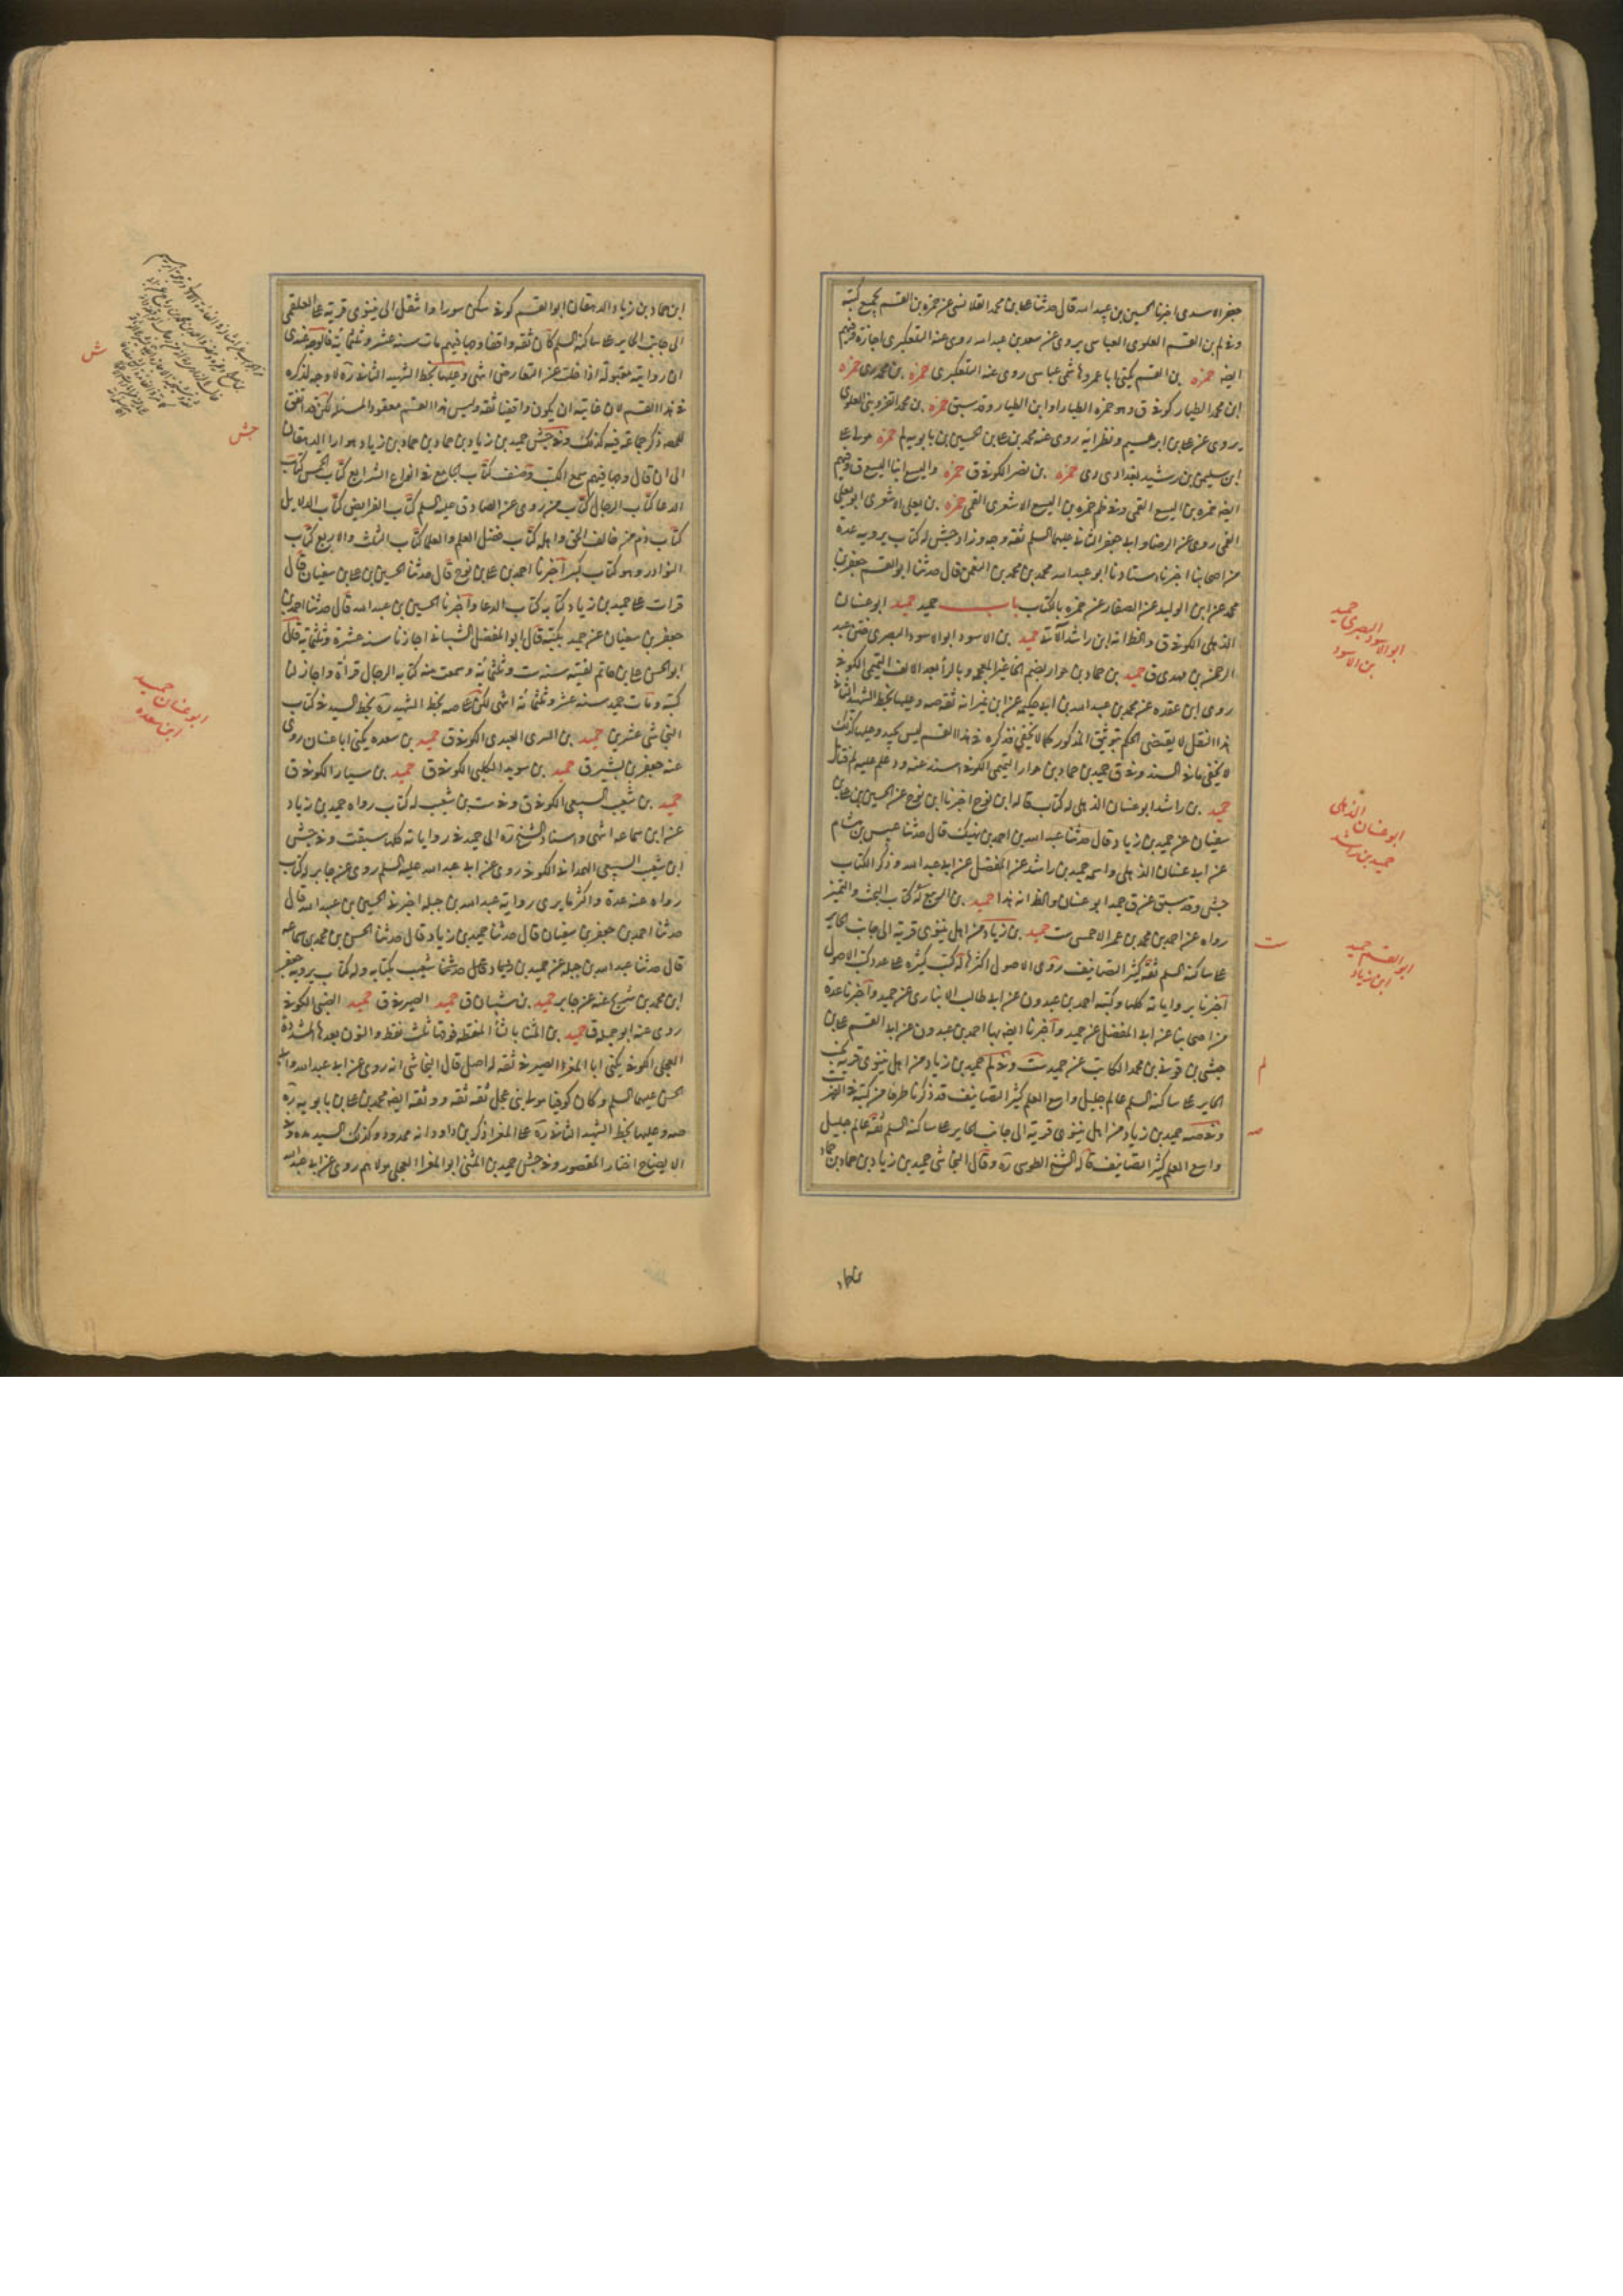 جعفر الاسدی اخبرنا الحسین بن عبیدالله قال حدثنا علی بن محمد القلانسی عن حمزه بن القسم بجمیع کتبه
وفی لم بن القسم العلوی العباسی یروی عن سعد بن عبدالله روی عنه التلعکبری اجازة وفیهم
ایضا حمزه بن القسم یکنی ابا عمرو هاشمی عباسی روی عنه التلعکبری حمزه بن محمد ری حمزه
ابن محمد الطیار کوفی ق وهو حمزه الطیار او ابن الطیار وقد سبق حمزه بن محمد القزوینی العلوی
یروی عن علی بن ابرهیم ونظرائه روی عنه محمد بن علی بن الحسین بن بابویه لم حمزه مولی علی
ابن سلیمن بن رشید بغدادی دی حمزه بن نصر الکوفی ق حمزه والیسع ابنا الیسع ق وفیهم
ایضا حمزه بن الیسع القمی وفی ظم حمزه بن الیسع الاشعری القمی حمزه بن یعلی الاشعری ابو یعلی
القمی روی عن الرضا وابی جعفر الثانی علیهما السلم ثقه وجه وزاد جش له کتاب یرویه عدة
من اصحابنا اخبرنا استادنا ابو عبدالله محمد بن محمد بن النعمن قال حدثنا ابو القسم جعفر بن
محمد عن ابن الولید عن الصفار عن حمزه بالکتاب باب حمید حمید ابو غسان
الذهلی الکوفی ق والظ انه ابن راشد الآتی حمید بن الاسود ابو الاسود البصری ختن عبد
الرحمن بن مهدی ق حمید بن حماد بن حوار بضم الخا غیر المعجمه وبالرا بعد الالف التمیمی الکوفی
روی ابن عقده عن محمد بن عبدالله بن ابی حکیمه عن ابن نمیر انه ثقه صه وعلیها بخط الشهید الثانی
هذا النقل لا یقتضی الحکم بتوثیق المذکور کما لا یخفی فذکره فی هذا القسم لیس بجید وعلیها کذلک
لا یخفی ما فی السند وفی ق حمید بن حماد بن حوار التمیمی الکوفی اسند عنه
حمید بن راشد ابو غسان الذهلی له کتاب قاله ابن نوح اخبرنا ابن نوح عن الحسین بن علی بن
سفیان عن حمید بن زیاد قال حدثنا عبدالله بن احمد بن نهیک قال حدثنا عبیس بن هشام
عن ابی غسان الذهلی واسمه حمید بن راشد عن المفضل عن ابی عبدالله وذکر الکتاب
جش وقد سبق عن ق حمید ابو غسان والظ انه هذا حمید بن الربیع له کتاب البحث والتمیز
رواه عن احمد بن محمد بن عمر الاحمسی ست حمید بن زیاد من اهل نینوی قریة الی جانب الحایر
علی ساکنه السلم ثقه کثیر التصانیف روی الاصول اکثرها له کتب کثیره علی عدد کتب الاصول
اخبرنا بروایاته کلها وکتبه احمد بن عبدون عن ابی طالب الانباری عن حمید واخبرنا عدة
من اصحابنا عن ابی المفضل عن حمید واخبرنا ایضا بها احمد بن عبدون عن ابی القسم علی بن
حبشی بن قونی بن محمد الکاتب عن حمید ست وفی لم حمید بن زیاد من اهل نینوی قریة بجنب
الحایر علی ساکنه السلم عالم جلیل واسع العلم کثیر التصانیف قد ذکرنا طرفا من کتبه فی الفهرست
وفی صه حمید بن زیاد من اهل نینوی قریة الی جانب الحایر علی ساکنه السلم ثقة عالم جلیل
واسع العلم کثیر التصانیف قاله الشیخ الطوسی ره وقال النجاشی حمید بن زیاد بن حماد بن حماد
ابو الاسود البصری حمید
بن الاسود
ابو غسان الذهلی
حمید بن راشد
ست
ابو القسم حمید
ابن زیاد
لم
صه
ابن حماد بن زیاد الدهقان ابو القسم کوفی سکن سورا وانتقل الی نینوی قریة علی العلقمی
الی جانب الحایر علی ساکنه السلم کان ثقه واقفا وجها فیهم مات سنه عشر وثلثمائة فالوجه عندی
ان روایته مقبولة اذا خلت عن التعارض انتهی وعلیها بخط الشهید الثانی ره لا وجه لذکره
فی هذا القسم لان غایته ان یکون واقفیا ثقه ولیس هذا القسم معقودا لمثله لکن قد اتفق
للمصه ذکر جماعة فیه کذلک وفی جش حمید بن زیاد بن حماد بن حماد بن زیاد هوارا الدهقان
الی ان قال وجها فیهم سمع الکتب وصنف کتاب الجامع فی انواع الشرایع کتاب الخمس کتاب
الدعا کتاب الرجال کتاب من روی عن الصادق علیه السلم کتاب الفرایض کتاب الدلایل
کتاب ذم من خالف الحق واهله کتاب فضل العلم والعلما کتاب الثلث والاربع کتاب
النوادر وهو کتاب کبیر اخبرنا احمد بن علی بن نوح قال حدثنا الحسین بن علی بن سفیان قال
قرات علی حمید بن زیاد کتابه کتاب الدعا واخبرنا الحسین بن عبیدالله قال حدثنا احمد بن
جعفر بن سفیان عن حمید بکتبه قال ابو المفضل الشیبانی اجازنا سنه عشرة وثلثمایه وقال
ابو الحسن علی بن حاتم لقیته سنه ست وثلثمائة وسمعت منه کتابه الرجال قرأة واجاز لنا
کتبه ومات حمید سنه عشر وثلثمائة انتهی لکن علی صه بخط الشهید ره بخط السید فی کتاب
النجاشی عشرین حمید بن السری العبدی الکوفی ق حمید بن سعده یکنی ابا غسان روی
عنه جعفر بن بشیر ق حمید بن سوید الکلبی الکوفی ق حمید بن سیار الکوفی ق
حمید بن شعیب السبیعی الکوفی ق وفی ست بن شعیب له کتاب رواه حمید بن زیاد
عن ابن سماعه انتهی واسناد الشیخ ره الی حمید فی روایاته کلها سبقت وفی جش
ابن شعیب السبیعی الهمدانی الکوفی روی عن ابی عبدالله علیه السلم روی عن جابر له کتاب
رواه عنه عدة واکثر ما یروی روایة عبدالله بن جبله اخبرنی الحسین بن عبیدالله قال
حدثنا احمد بن جعفر بن سفیان قال حدثنا حمید بن زیاد قال حدثنا الحسن بن محمد بن سماعه
قال حدثنا عبدالله بن جبله عن حمید بن شعیب بکتابه وله کتاب یرویه جعفر
ابن محمد بن شریح عنه عن جابر حمید بن شیبان ق حمید الصیرفی ق حمید الضبی الکوفی
روی عنه ابو جمیله ق حمید بن المثنا بالثا المنقطه فوقها ثلث نقط والنون بعدها المشددة
العجلی الکوفی یکنی ابا المغرا الصیرفی ثقه له اصل قال النجاشی انه روی عن ابی عبدالله وابی
الحسن علیهما السلم وکان کوفیا مولی بنی عجل ثقه ثقه ووثقه ایضا محمد بن علی بن بابویه ره
صه وعلیها بخط الشهید الثانی ره علی المغرا ذکر بن داود انه ممدود وکذلک السید وفی
الایضاح اختار المقصور وفی جش حمید بن المثنی ابو المغرا العجلی مولاهم روی عن ابی عبدالله
ش
جش
ابو غسان حمید
ابن سعده
بن حماد